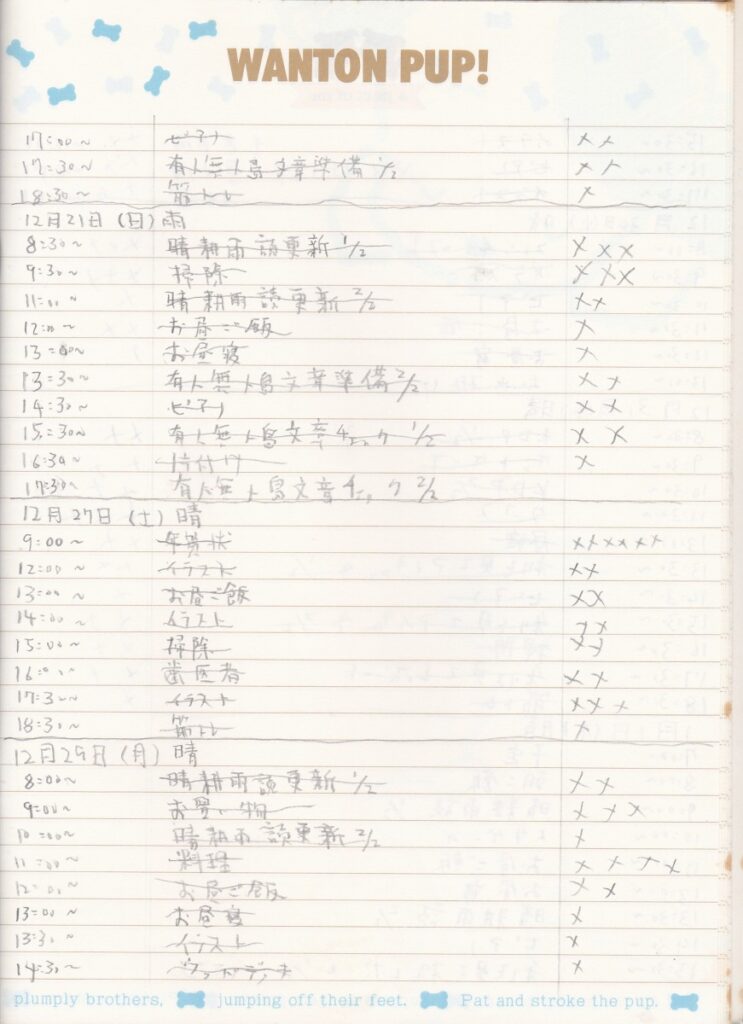 WANTON PUP!
17:00~ ピアノ ××
17:30~ 有人無人島文章準備 1/2 ××
18:30~ 筋トレ ×
12月21日(日)雨
8:30~ 晴耕雨読更新 1/2 ×××
9:30~ 掃除 ×××
11:00~ 晴耕雨読更新 2/2 ××
12:00~ お昼ご飯 ×
13:00~ お昼寝 ×
13:30~ 有人無人島文章準備 2/2 ××
14:30~ ピアノ ××
15:30~ 有人無人島文章チェック 1/2 ××
16:30~ 片付け ×
17:30~ 有人無人島文章チェック 2/2
12月27日(土)晴
9:00~ 年賀状 ××××××
12:00~ イラスト ××
13:00~ お昼ご飯 ××
14:00~ イラスト ××
15:00~ 掃除 ××
16:00~ 歯医者 ××
17:30~ イラスト ×××
18:30~ 筋トレ ×
12月29日(月)晴
8:00~ 晴耕雨読更新 1/2 ××
9:00~ お買い物 ×××
10:00~ 晴耕雨読更新 2/2 ×
11:00~ 料理 ××××
12:00~ お昼ご飯 ××
13:00~ お昼寝 ×
13:30~ イラスト ×
14:30~ ×
plumply brothers, jumping off their feet. Pat and stroke the pup.